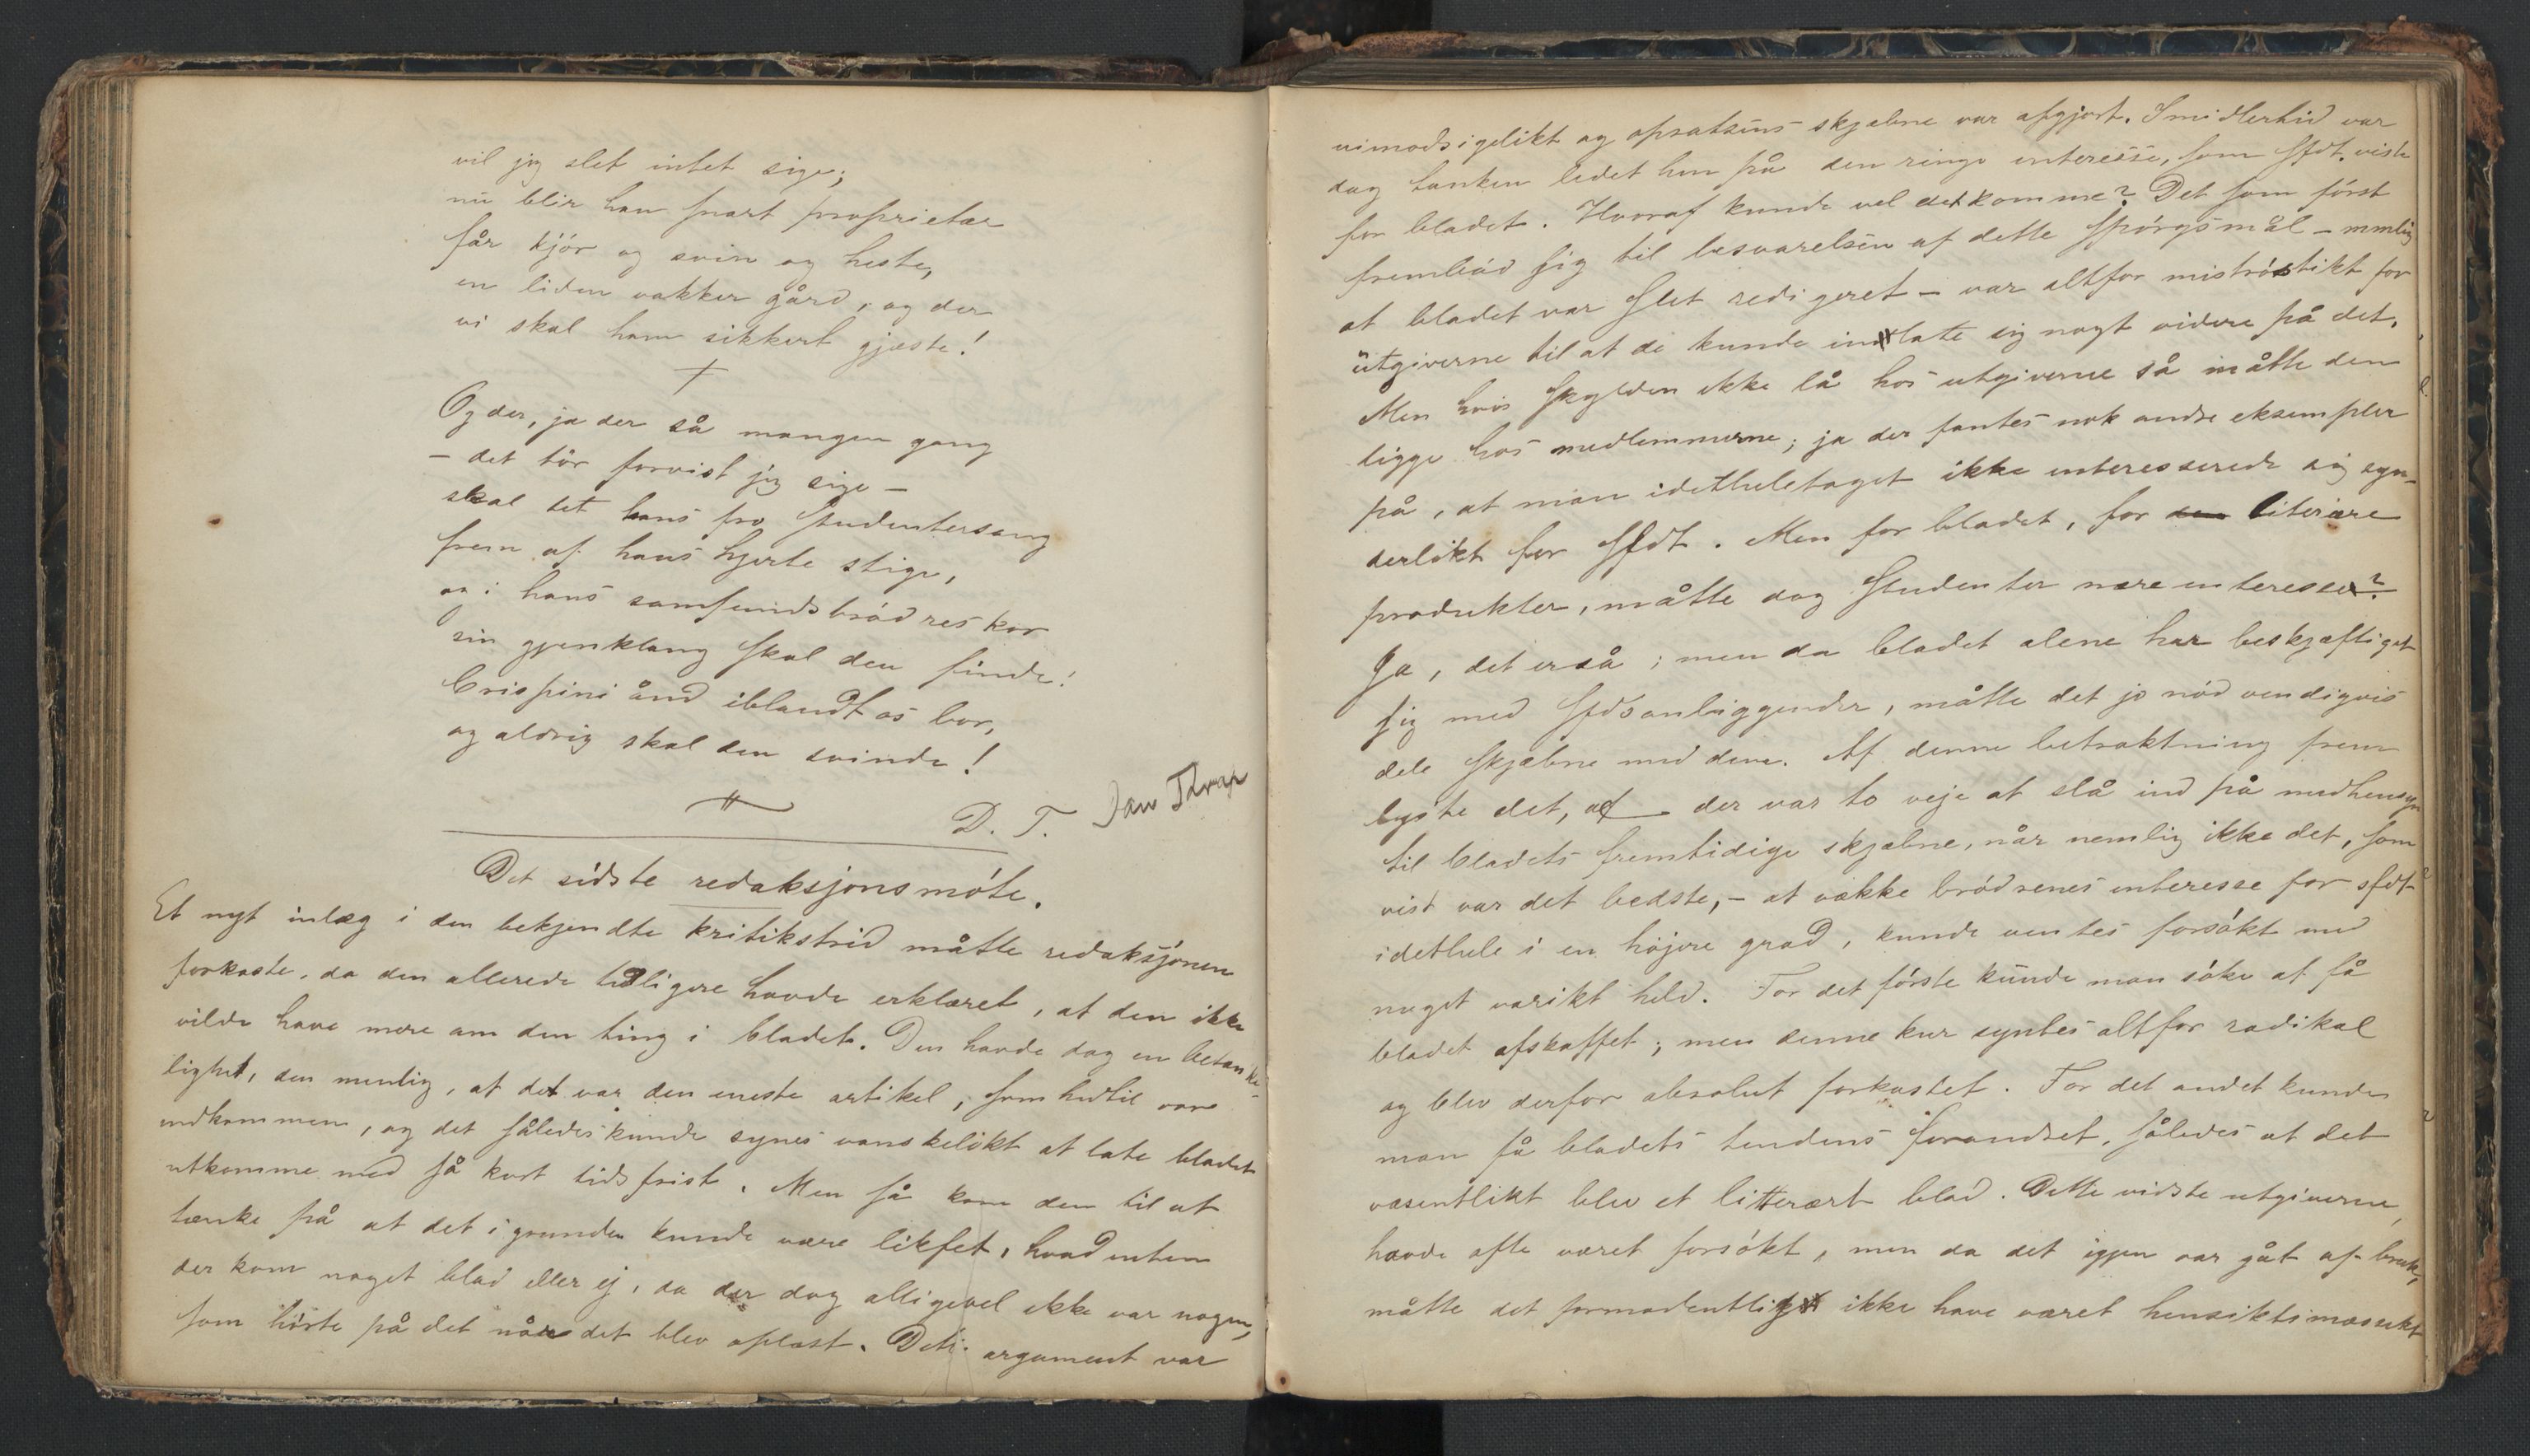 vil jeg slet intet sige;
nu blir han snart proprietær
får kjör og svin og heste,
en liden vakker gård, og der
vi skal ham sikkert gjæste!
Og der, ja der så mangen gang
– det tör forvist jeg sige –
skal tit hans fro studentersang
frem af hans hjerte stige,
og i hans samfundsbrödres kor
sin gjenklang skal den finde!
Crispini ånd iblandt os bor,
og aldrig skal den svinde!
D. T. Jan Thrap
Det sidste redaksjonsmöte.
Et nyt inlæg i den bekjendte kritikstrid måtte redaksjonen
forkaste, da den allerede tidligere havde erklæret, at den ikke
vilde have mere om den ting i bladet. Den havde dog en betænke-
lighet, den nemlig, at det var den eneste artikel, som hidtil var
indkommen, og det således kunde synes vanskelikt at late bladet
utkomme med så kort tidsfrist. Men så kom den til at
tænke på at det i grunden kunde være likefet, hvad enten
der kom noget blad eller ej, da der dog alligevel ikke var nogen,
som hörte på det når det blev oplæst. Dette argument var
uimodsigelikt og opsatsens skjæbne var afgjort. Imidlertid var
dog tanken ledet hen på den ringe interesse, som sfdt. viste
for bladet. Hvoraf kunde vel det komme? Det som först
frembød sig til besvarelsen af dette spörgsmål – nemlig
at bladet var slet redigeret – var altfor miströstikt for
utgiverne til at de kunde inlate sig nogt videre på det.
Men hvis skylden ikke lå hos utgiverne så måtte den
ligge hos medlemmerne; ja der fantes nok andre eksempler
på, at man idethuletaget ikke interesserede sig syn-
derlikt for sfdt. Men for bladet, for literære
produkter, måtte dog studenter nære interesse?
Ja, det er så; men da bladet alene har beskjæftiget
sig med sfdsanliggender, måtte det jo nödvendigvis
dele skjæbne med dem. Af denne betraktning frem
lyste det, at der var to veje at slå ind på medhensyn
til bladets fremtidige skjæbne, når nemlig ikke det, som
vist var det bedste, – at vække brödrenes interesse for sfdt
idethele i en höjere grad, kunde ventes forsökt med
noget varikt held. For det förste kunde man söke at få
bladet afskaffet; men denne kur syntes altfor radikal
og blev derfor absolut forkastet. For det andet kunde
man få bladets tendens forandret, således at det
væsentlikt blev et litterært blad. Dette vidste utgiverne,
havde ofte været forsökt, men da det igjen var gåt af bruk,
måtte det formodentlig ikke have været hensiktsmæssikt